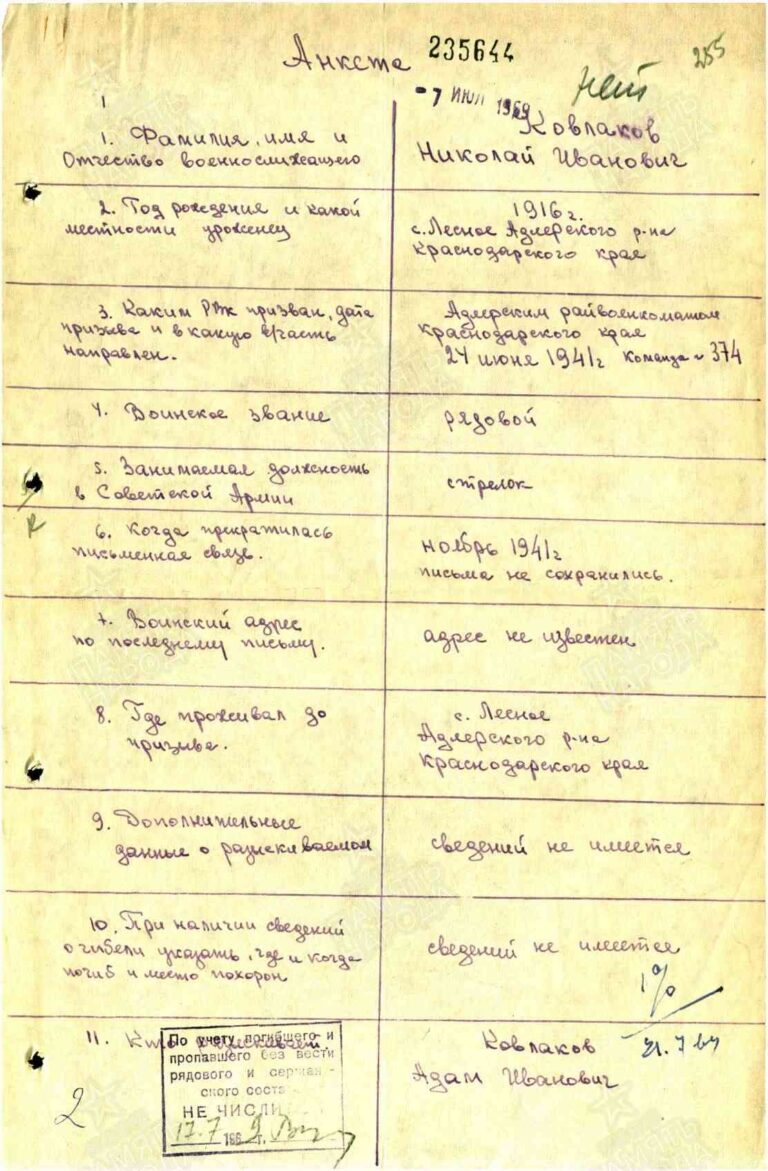 Анкета 235644
255
-7 ИЮЛ 1969
нет
1
1. Фамилия, имя и
Отчество военнослужащего
Ковлаков
Николай Иванович
2. Год рождения и какой
местности уроженец
1916 г.
с. Лесное Адлерского р-на
Краснодарского края
3. Каким РВК призван, дата
призыва и в какую в/часть
направлен.
Адлерским райвоенкоматом
Краснодарского края
24 июня 1941г Команда № 374
4. Воинское звание
рядовой
5. Занимаемая должность
в Советской Армии
стрелок
6. Когда прекратилась
письменная связь.
ноябрь 1941г
письма не сохранились.
7. Воинский адрес
по последнему письму.
адрес не известен
8. Где проживал до
призыва.
с. Лесное
Адлерского р-на
Краснодарского края
9. Дополнительные
данные о разыскиваемом
сведений не имеется
10. При наличии сведений
о гибели указать, где и когда
погиб и место похорон
сведений не имеется
11. Кто разыскивает
Ковлаков
Адам Иванович
По счету погибшего и
пропавшего без вести
рядового и сержан-
ского соста
НЕ ЧИСЛИ
17.7 1969 г.
2
ПАМЯТЬ
НАРОДА